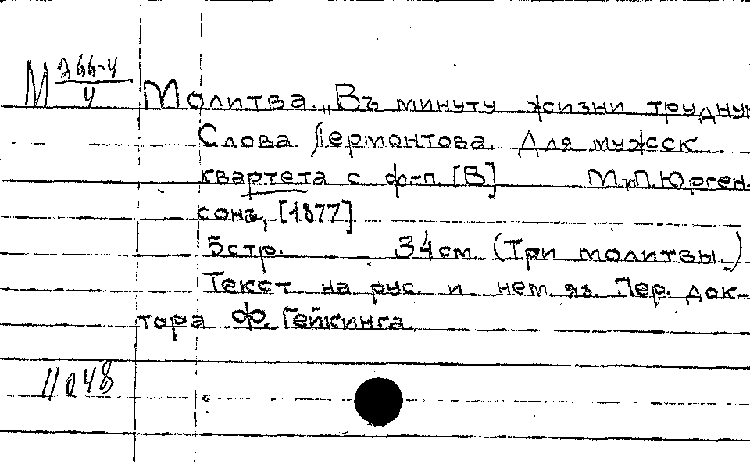 М 366-4/4 Молитва. „Въ минуту жизни трудную
Слова Лермонтова. Для мужск.
квартета с ф-п. [В] М., П. Юрген-
сонъ, [1877]
5 стр. 34 см. (Три молитвы.)
Текст на рус. и нем. яз. Пер. док-
тора Ф. Гейкинга.
11048